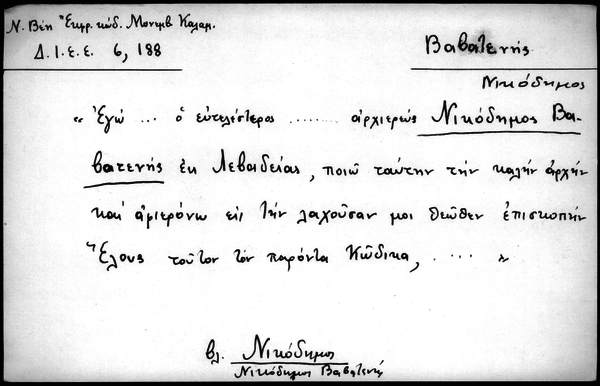 Ν. Βέη Ἔκφρ. κώδ. Μονεμβ Καλαμ.
Δ.Ι.Ε.Ε. 6, 188
Βαβατενής
Νικόδημος
« Ἐγώ ... ὁ εὐτελέστερος ........ ἀρχιερεύς Νικόδημος Βα-
βατενής ἐκ Λεβαδείας, ποιῶ ταύτην τήν καλήν ἀρχήν
καί ἀφιερόνω εἰς τήν λαχοῦσαν μοι θεῶθεν ἐπισκοπήν
Ἕλους τοῦτον τόν παρόντα Κώδικα, .... »
βλ. Νικόδημος
Νικόδημος Βαβατενής